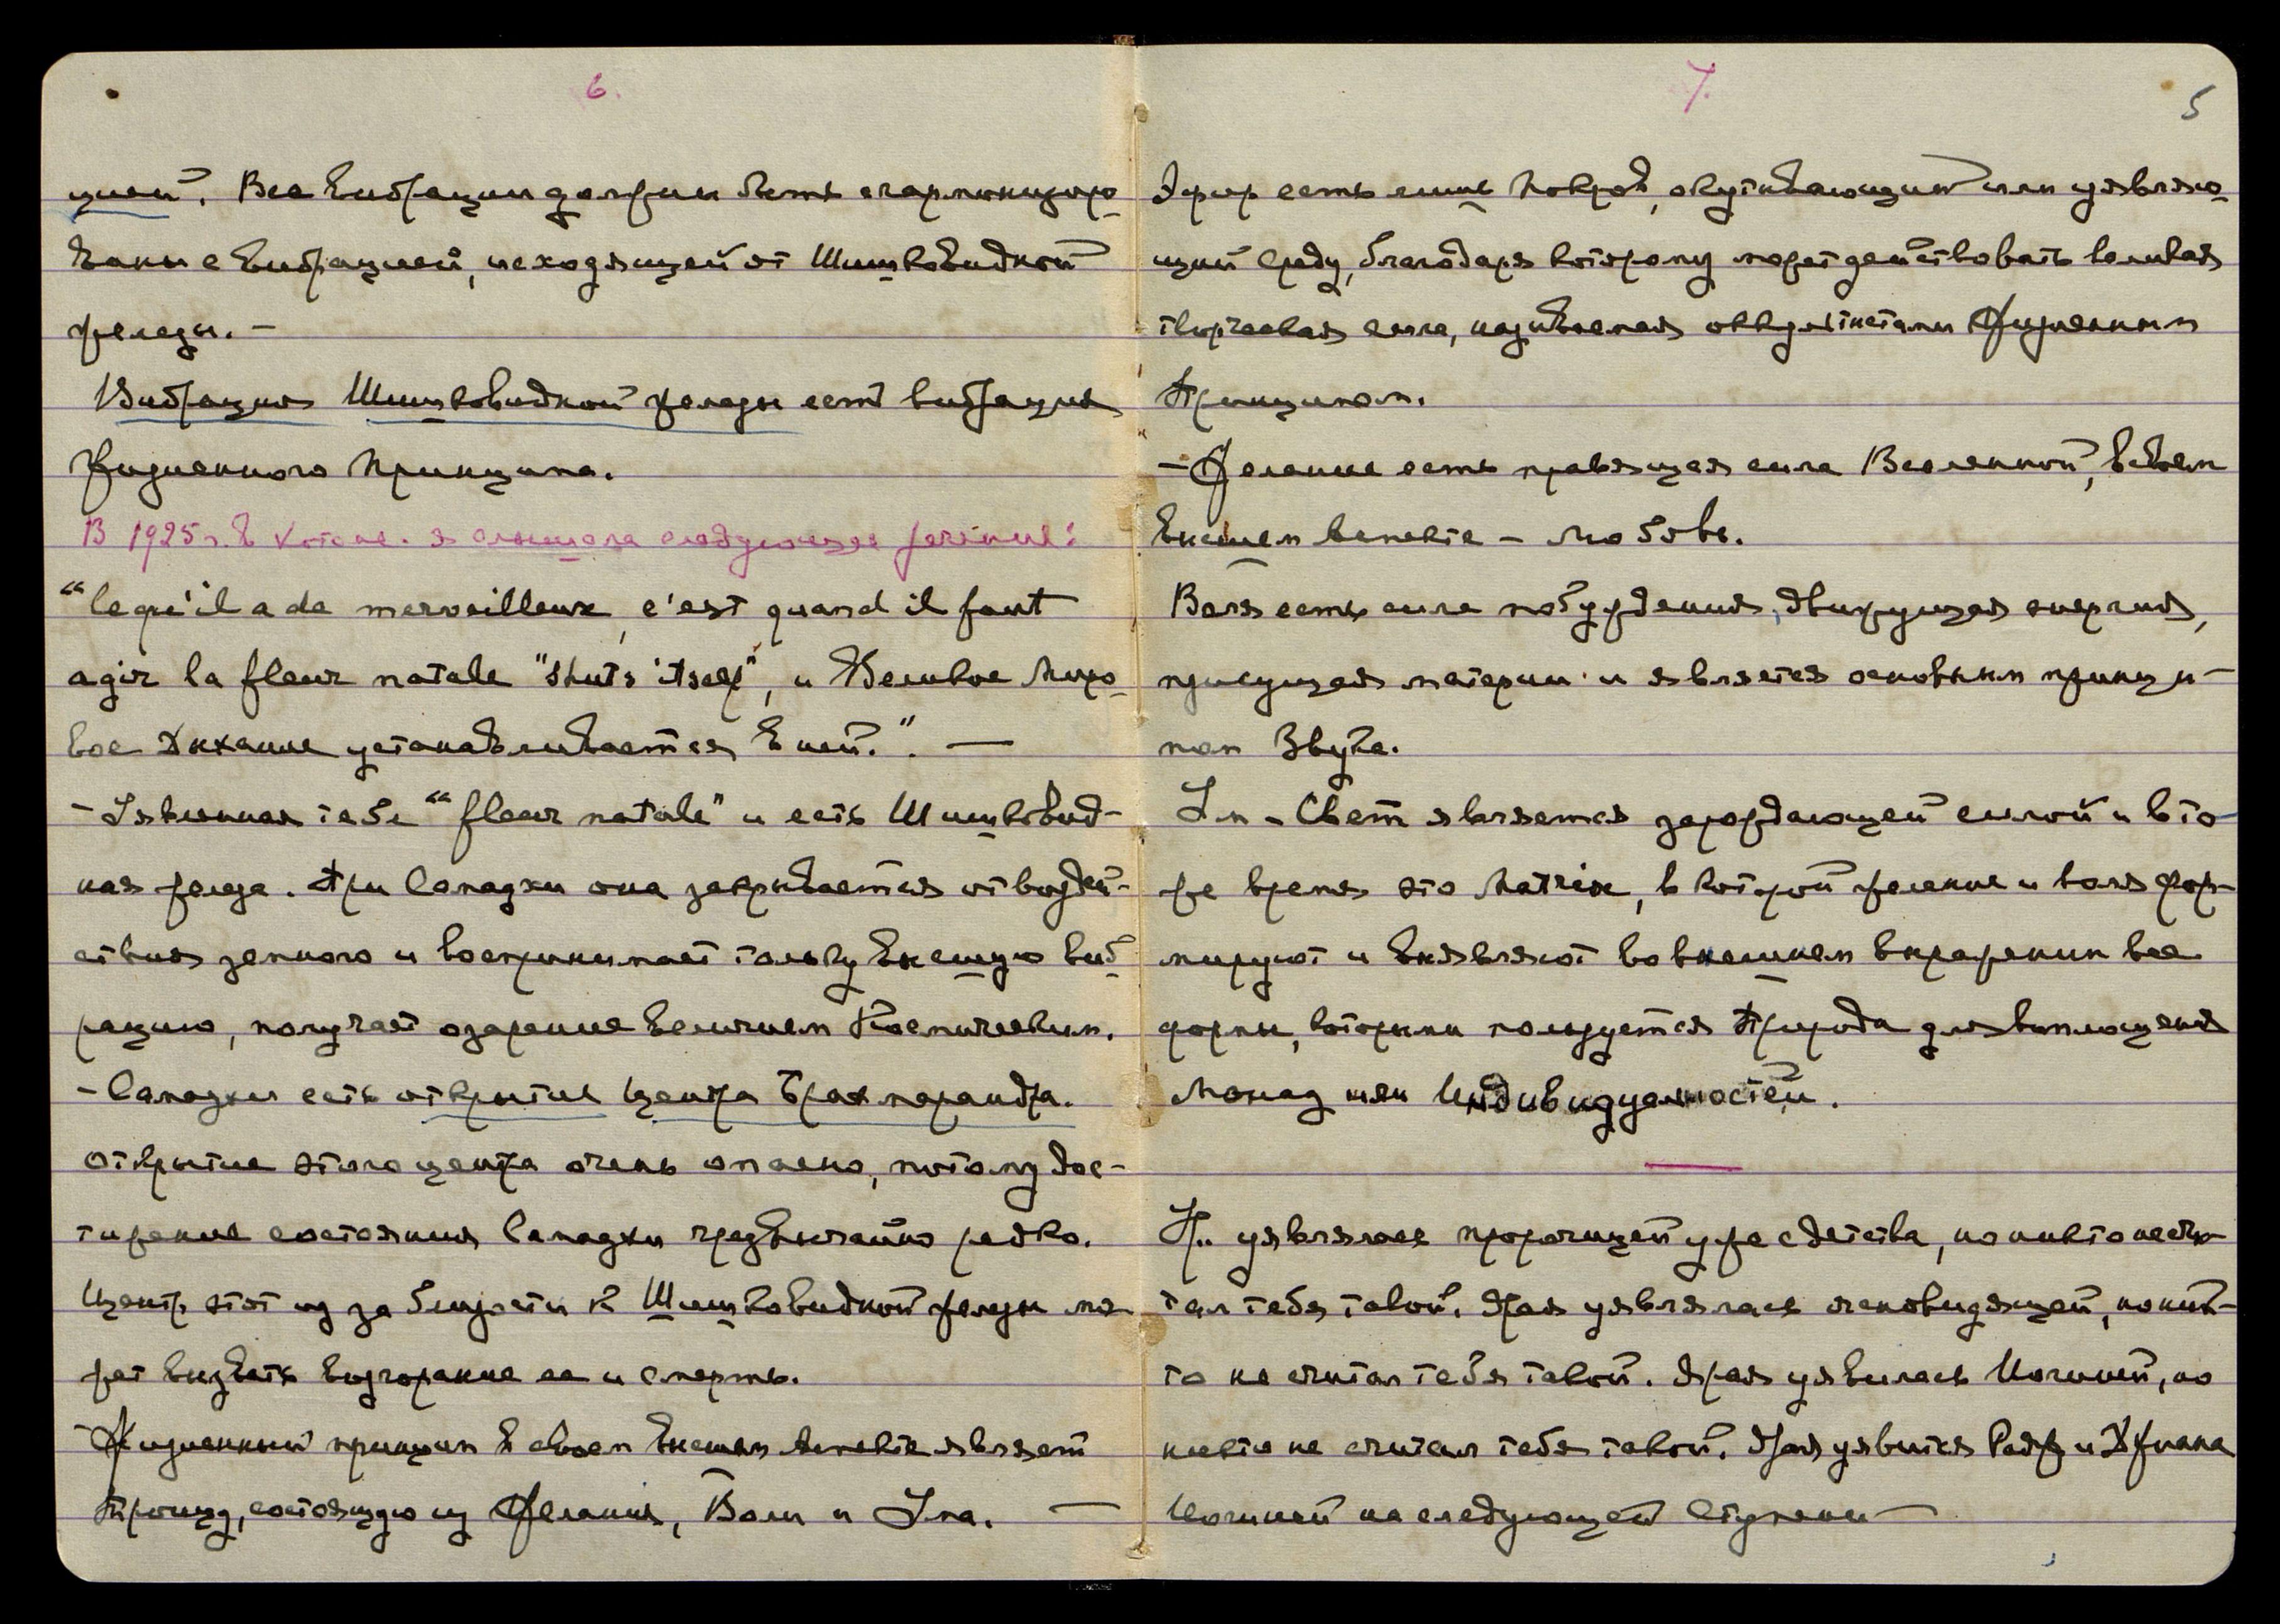 6.
цией. Все вибрации должны быть сгармонизиро-
ваны с вибрацией, исходящей от Шишковидной
железы. —
Вибрация Шишковидной железы есть вибрация
Жизненного Принципа.
В 1925 г. в я слышала следующее речение:
"Ce qu'il a de merveilleux, c'est quand il faut
agir la fleur natale "shuts itself", и Великое Миро-
вое Дыхание устанавливается в ней.". —
- Явленная тебе "fleur natale" и есть Шишковид-
ная железа. При Самадхи она закрывается от воздей-
ствия земного и воспринимает только Высшую виб-
рацию, получает озарение Величием Космическим.
- Самадхи есть открытие центра Брахмарандра.
Открытие этого центра очень опасно, потому дос-
тижение состояния Самадхи чрезвычайно редко.
Центр этот из за близости к Шишковидной железы мо-
жет вызвать возгорание ее и смерть.
- Жизненный принцип в своем Высшем Аспекте являет
Троицу, состоящую из Желания, Воли и Ума. —
7.
5
Эфир есть лишь Покров, окутывающий или уявляю-
щий среду, благодаря которому может действовать великая
творческая сила, называемая оккультистами Жизненным
Принципом.
- Желание есть правящая сила Вселенной, в своем
Высшем аспекте — Любовь.
Воля есть сила побуждения, движущая энергия,
присущая материи и является основным принци-
пом Звука.
Ум - Свет является зарождающей силой и в то
же время это Matrix, в которой желание и воля фор-
мируют и выявляют во внешнем выражении все
формы, которыми пользуется Природа для воплощения
Монад или Индивидуальностей.
Ур. уявлялась пророчицей уже с детства, но никто не счи-
тал тебя такой. Ур. уявлялась ясновидящей, но ник-
то не считал тебя такой. уявилась Йогиней, но
никто не считал тебя такой. уявится Радж и Джнана
Йогиней на следующей Ступени —